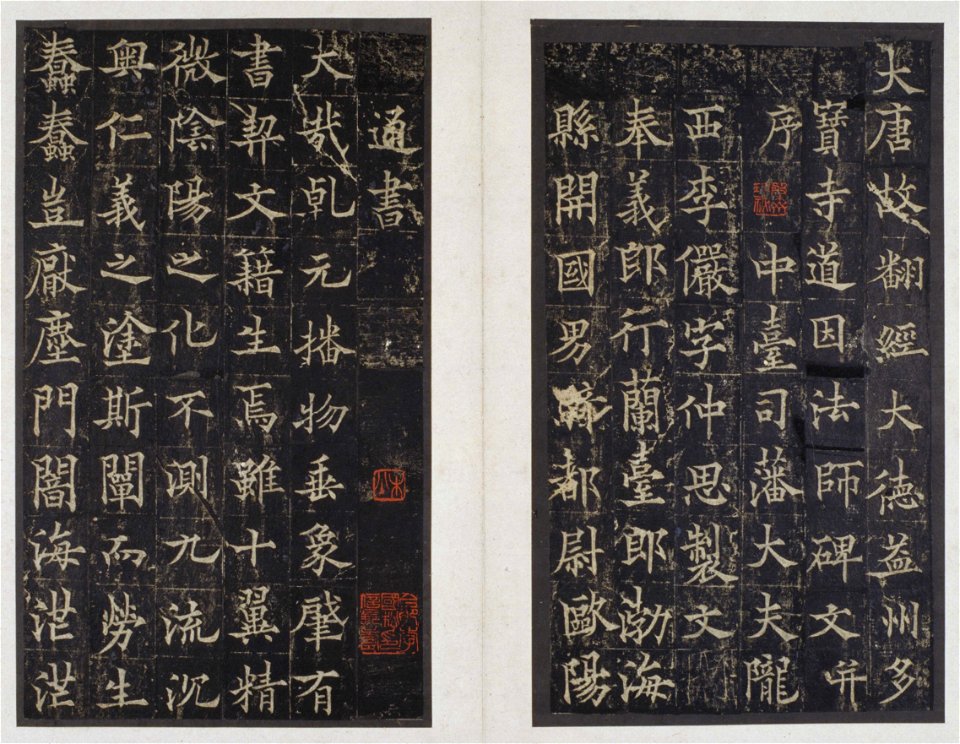 大唐故翻經大德益州多
寶寺道因法師碑文并
序 中臺司藩大夫隴
西李儼字仲思製文
奉義郎行蘭臺郎渤海
縣開國男 都尉歐陽
通書
大哉乹元播物垂象肇有
書契文籍生焉雖十翼精
微陰陽之化不測九流沉
奥仁義之塗斯闡而勞生
蠢蠢豈厭塵門闇海茫茫